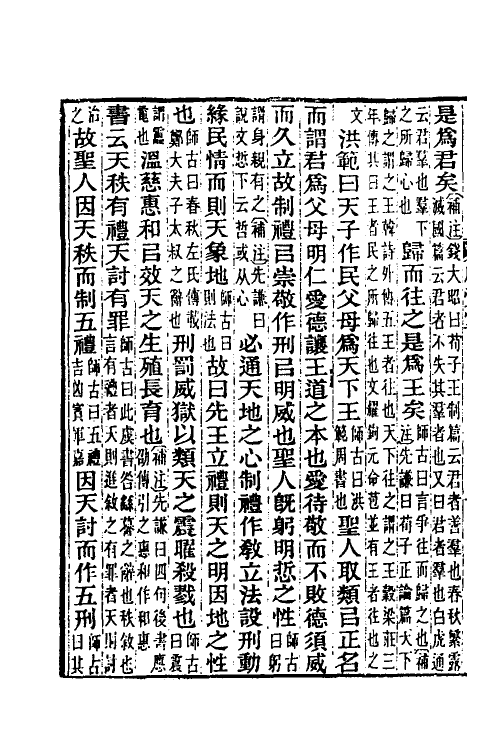 是爲君矣補注錢大昭曰荀子王制篇云君者善羣也春秋繁露滅國篇云君者不失其羣者也又曰君者羣也白虎通云君羣也羣下之所歸心也歸而往之是爲王矣師古曰言爭往而歸之也補注先謙曰荀子正論篇天下
歸之謂之王韓詩外傳五王者往也天下往之謂之王穀梁莊三年傳其曰王者民之所歸往也文耀鉤元命苞並有王者往也之
文洪範曰天子作民父母爲天下王師古曰洪範周書也聖人取類㠯正名
而謂君爲父母明仁愛德讓王道之本也愛待敬而不敗德須威
而久立故制禮㠯崇敬作刑㠯明威也聖人旣躬明悊之性師古曰躬
謂身親有之補注先謙曰說文悊下云哲或从心必通天地之心制禮作敎立法設刑動
緣民情而則天象地師古曰則法也故曰先王立禮則天之明因地之性
也師古曰春秋左氏傳載鄭大夫子太叔之辭也刑罰威獄以類天之震曜殺戮也師古曰震
謂雷電也溫慈惠和㠯效天之生殖長育也補注先謙曰四句後書應劭傳引之惠和作和惠
書云天秩有禮天討有罪師古曰此虞書咎繇謩之辭也秩敘也言有禮者天則進敘之有罪者天則討
治之故聖人因天秩而制五禮師古曰五禮吉凶賓軍嘉因天討而作五刑師古曰其